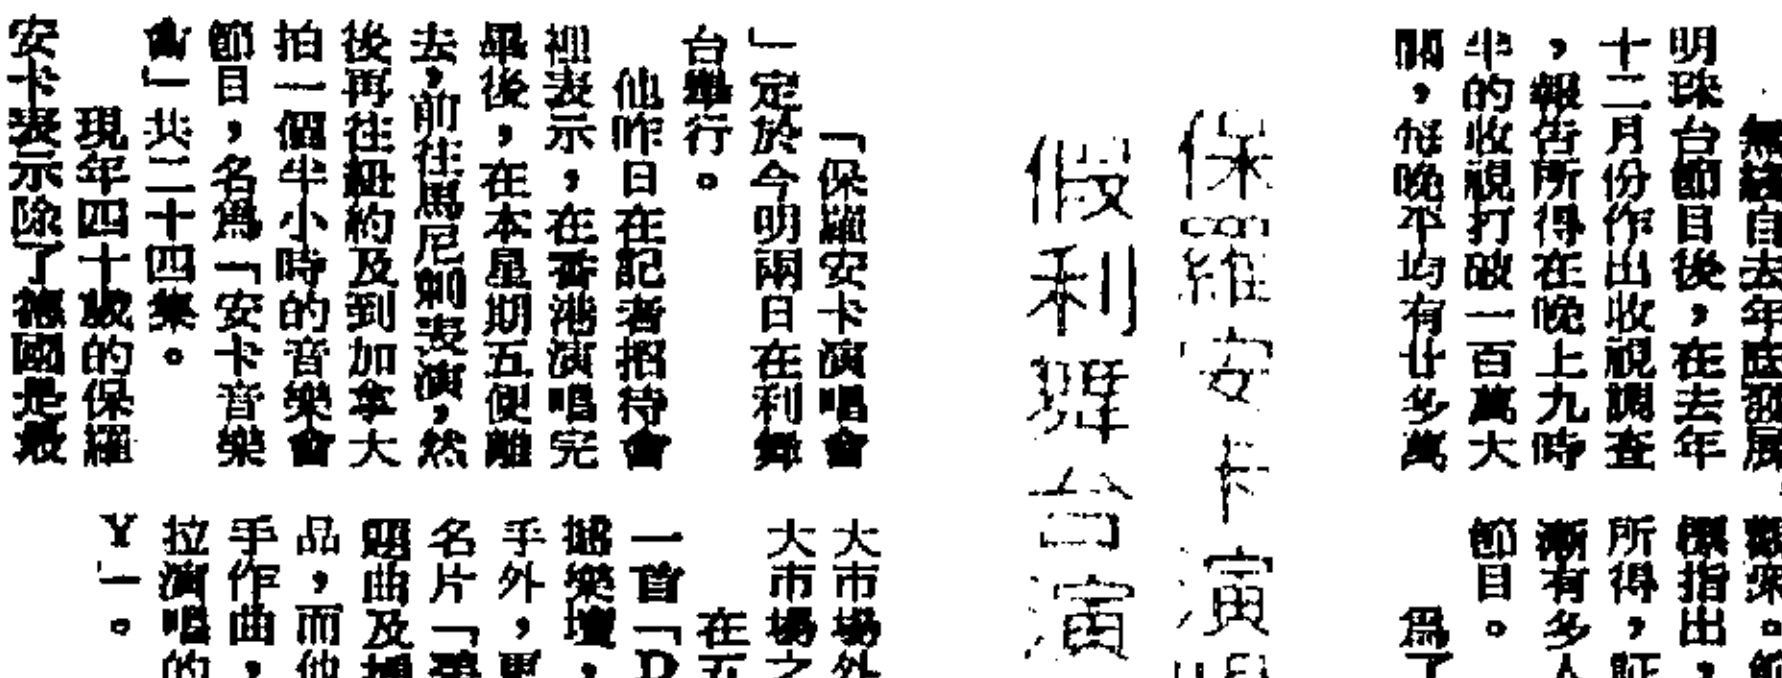 無綫自去年底發展
明珠台節目後，在去年
十二月份作出收視調查
，報告所得在晚上九時
半的收視打破一百萬大
關，每晚平均有廿多萬
觀眾。
標指出，
所得，証
漸有多人
節目。
為了
保羅安卡演唱
假利舞台演
「保羅安卡演唱會
」定於今明兩日在利舞
台舉行。
他昨日在記者招待會
裡表示，在香港演唱完
畢後，在本星期五便離
去，前往馬尼剌表演，然
後再往紐約及到加拿大
拍一個半小時的音樂會
節目，名為「安卡音樂
會」共二十四集。
現年四十歲的保羅
安卡表示除了德國是最
大市場外
大市場之
在五
一首「D
搖樂壇，
手外，更
名片「
題曲及插
品，而他
手作曲，
拉演唱的
Y」。